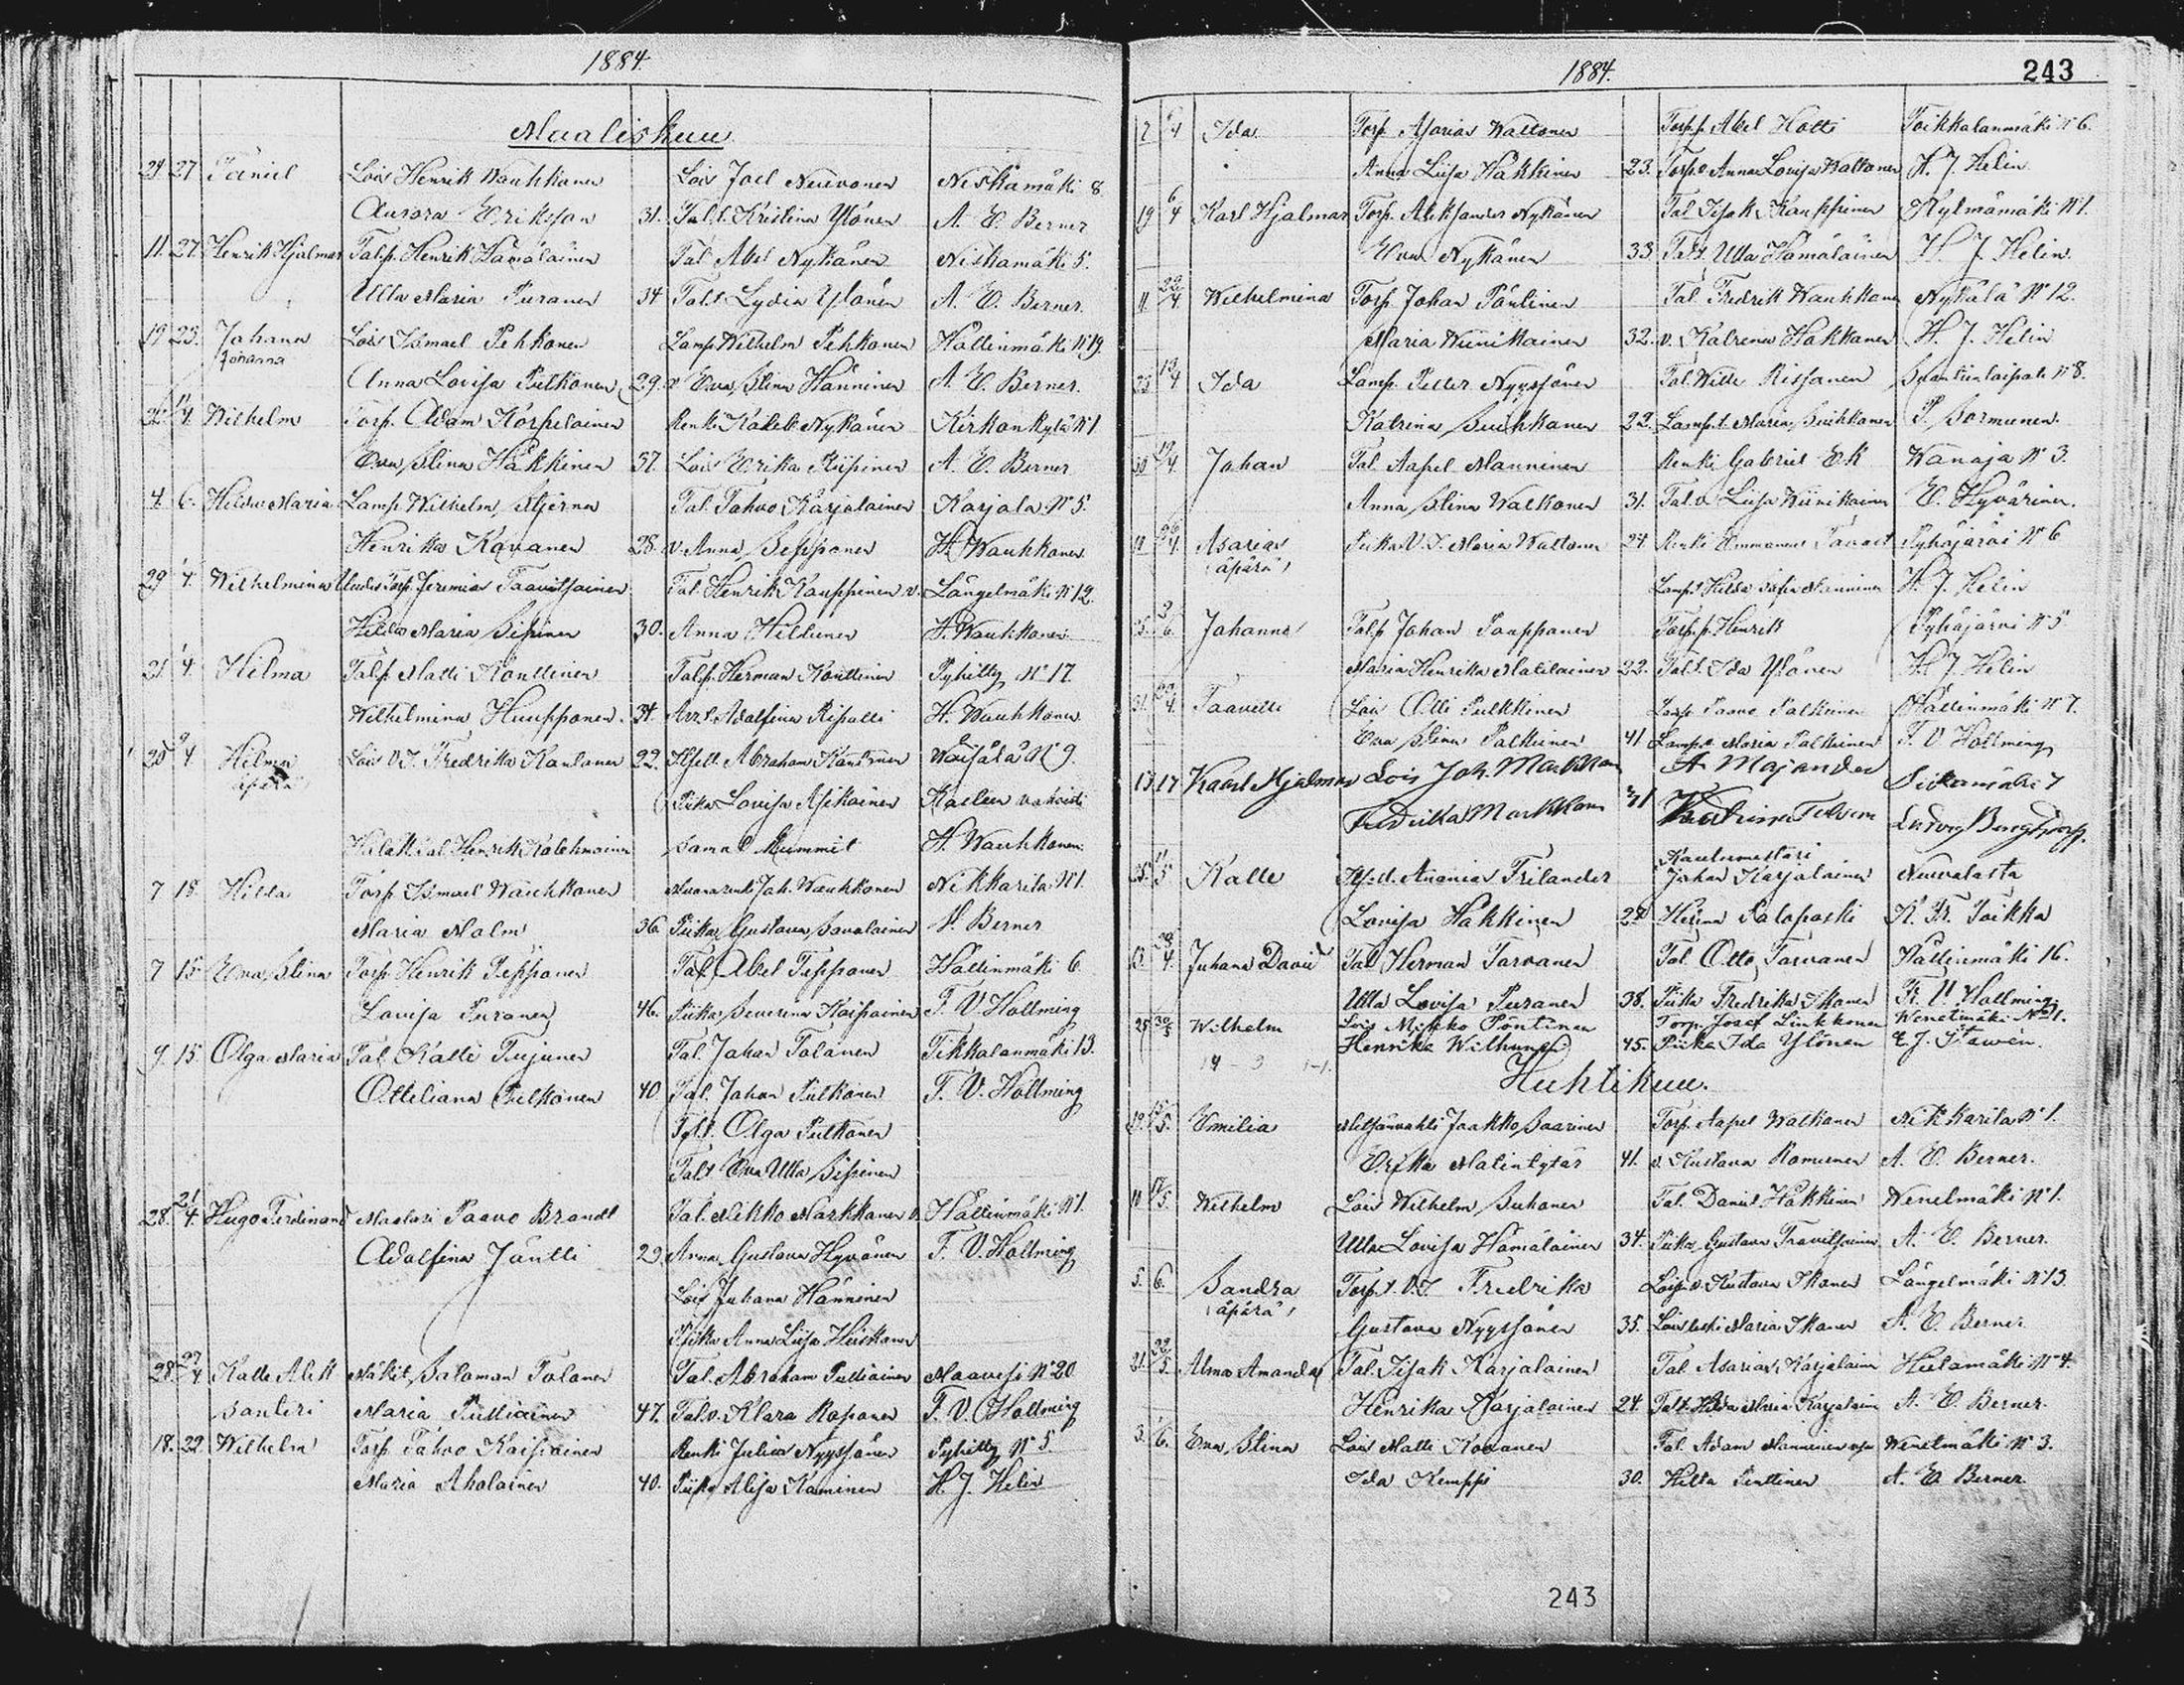 1884.
Maaliskuu
21 27 Taniel Lois Henrik Wauhkonen Lois Joel Neuvonen Niskamäki 8.
Aurora Eriksson 31. Tal.t. Kristina Ylönen A. E. Berner
11. 27. Henrik Hjalmar Talp. Henrik Hämäläinen Tal. Abel Nykänen Niskamäki 5.
Ulla Maria Puranen 34 Tal.t. Lydia Ylönen A. E. Berner.
19 23. Johann Lois Ismael Pehkonen Lamp. Wilhelm Pehkonen Hällinmäki N:19.
Johanna
Anna Lovisa Pulkonen 29. v. Eva Stina Hänninen A. E. Berner.
/4. Wilhelm Torp. Adam Korpelainen Renki Kaleb Nykänen Kirkonkylä N:1
Eva Stina Häkkinen 37. Lois Erika Riipinen A. E. Berner
4. 6. Hilda Maria Lamp. Wilhelm Stjerna Tal. Tahvo Karjalainen Karjala N:5.
Henrika Kovanen 28. v. Anna Sepponen H. Wauhkonen
29 /4. Wilhelmina Torp. Jeremias Taavitsainen Tal. Henrik Kauppinen v. Längelmäki N:12.
Hilda Maria Sipinen 30. Anna Hildunen H. Wauhkonen
21 /4 Hilma Talp. Matti Konttinen Talp. Herman Konttinen Pyhitty N:17.
Wilhelmina Huupponen. 34. Adolfina Ripatti H. Wauhkonen
20 9/4. Hilma Lois v.t. Fredrika Kaulanen 22. Itsell. Abraham Waijälä N:9.
äpärä
Piika Lovisa Asikainen Kasteen vahvisti
Henrik Kolehmainen samat kummit H. Wauhkonen.
7 15. Hilda Torp. Ismael Wauhkonen Joh. Wauhkonen Nikkarila N:1.
Maria Malm 36. Piika Gustava Savolainen A. Berner
7 15. Eva Stina Torp. Henrik Tepponen Tal. Abel Tepponen Hällinmäki 6.
Lovisa Puranen 46. Piika Severina Kaipainen F. V. Hollming
9. 15. Olga Maria Tal. Kalle Tujunen Tal. Johan Tolanen Tikkalanmäki 13.
Ottiliana Pulkonen 40 Tal. Johan Pulkonen F. V. Hollming
Tal.t. Olga Pulkonen
Tal.t. Eva Ulla Sipinen
28. 21/4. Hugo Ferdinand Maalari Paavo Brandt Tal. Mikko Markkanen v. Hällinmäki N:1.
Adolfina Jäntti 29. Anna Gustava Hyvönen F. V. Hollming
Lois Juhana Hänninen
Piika Anna Liisa Heiskanen
28. 27/4 Kalle Alek Mäkit. Salomon Tolanen Tal. Abraham Pulliainen Maavesi N:20
Santeri Maria Pulliainen 47. Tal.v. Klara Raponen F. V. Hollming
18. 22. Wilhelm Torp. Tahvo Kaipainen Renki Julius Nyyssönen Pyhitty N:5.
Maria Aholainen 40. Piika Alisa Kaminen H. J. Helin
1884.
243
2 6/4 Ida Torp. Asarias Waltonen Torp.p. Abel Hotti Toikkalanmäki N:6.
Anna Liisa Häkkinen 23. Torp.v. Anna Lovisa Waltonen H. J. Helin
19 6/4 Karl Hjalmar Torp. Aleksander Nykänen Tal. Isak Kauppinen Kylmämäki N:1.
Eva Nykänen 33. Tal.t. Ulla Hämäläinen H. J. Helin.
11. 22/4. Wilhelmina Torp. Johan Pöntinen Tal. Fredrik Wauhkonen Nykälä N:12.
Maria Wiinikainen 32. v. Katrina Hakkanen H. J. Helin
23 12/4 Ida Lamp. Petter Nyyssönen Tal. Wille Rissanen Suontientaipale N:8.
Katrina Suihkonen 22. Lamp.t. Maria Suihkonen P. Sormunen.
/4. Johan Tal. Aapel Manninen Renki Gabriel Ek Wanaja N:3.
Anna Stina Walkonen 31. Tal.v. Liisa Wiinikainen E. Hyvärinen.
/4. Asarias Piika V.T. Maria Waltonen 24 Renki Emmanuel Pyhäjärvi N:6
(äpärä)
Lamp.t. Hilda Sofia Manninen H. J. Helin
5. 2/6. Johanna Talp. Johan Paappanen Torp.p. Henrik Pyhäjärvi N:5
Maria Henrika Matilainen 22. Tal.t. Ida Ylönen H. J. Helin
31. /4. Taavetti Lois Olli Pulkkinen Paavo Palkinen Hällinmäki N:7.
Eva Stina Palkinen 41 Lamp.v. Maria Palkinen F. V. Hollming
13 17 Kaarl Hjalmar Lois Joh. Markkanen A. Majander Siikamäki 7
Fredrika Markkanen Katrina Tolvanen Ludvig Bengtsson.
25. 11/5. Kalle Itsell. Ananias Frilander Kauhumestari
Johan Karjalainen Neuvolasta
Lovisa Häkkinen 27 Helena Palopaski K. Fr. Toikka
13. /4. Juhana Daavid Tal. Herman Tarvanen Tal. Otto Tarvanen Hällinmäki 16.
Ulla Lovisa Puranen 38. Piika Fredrika Ikonen F. V. Hollming
25 30/5 Wilhelm Lois Mikko Pöntinen Torp. Josef Linkkonen Wenetmäki No 1.
Henrika Wilhunen 45. Piika Ida Ylönen E. J. Stawén.
19 – 3 1–1.
Huhtikuu.
19. /5. Emilia Metsänvahti Jaakko Saarinen Torp. Aapel Walkonen Nikkarila N:1.
Erika Matintytär 41. v. Kustava Romunen A. E. Berner.
10 /5. Wilhelm Lois Wilhelm Suhonen Tal. Daniel Häkkinen Wenetmäki N:1.
Ulla Lovisa Hämäläinen 34. Piika Gustava Taavitsainen A. E. Berner.
5. 6. Sandra Torp.t. V.T. Fredrika Lois.v. Kustava Ikonen Längelmäki N:13
(äpärä)
Gustava Nyyssönen 35. Lois leski Maria Ikonen A. E. Berner
21. 22/5. Alma Amanda Tal. Iisak Karjalainen Tal. Asarias Karjalainen Hiilamäki N:4.
Henrika Karjalainen 24. Tal.t. Hilda Maria Karjalainen A. E. Berner.
3. /6. Eva Stina Lois Matti Kovanen Tal. Adam Manninen Wenetmäki N:3.
Ida Kemppi 30. Hilta Penttinen A. E. Berner.
243